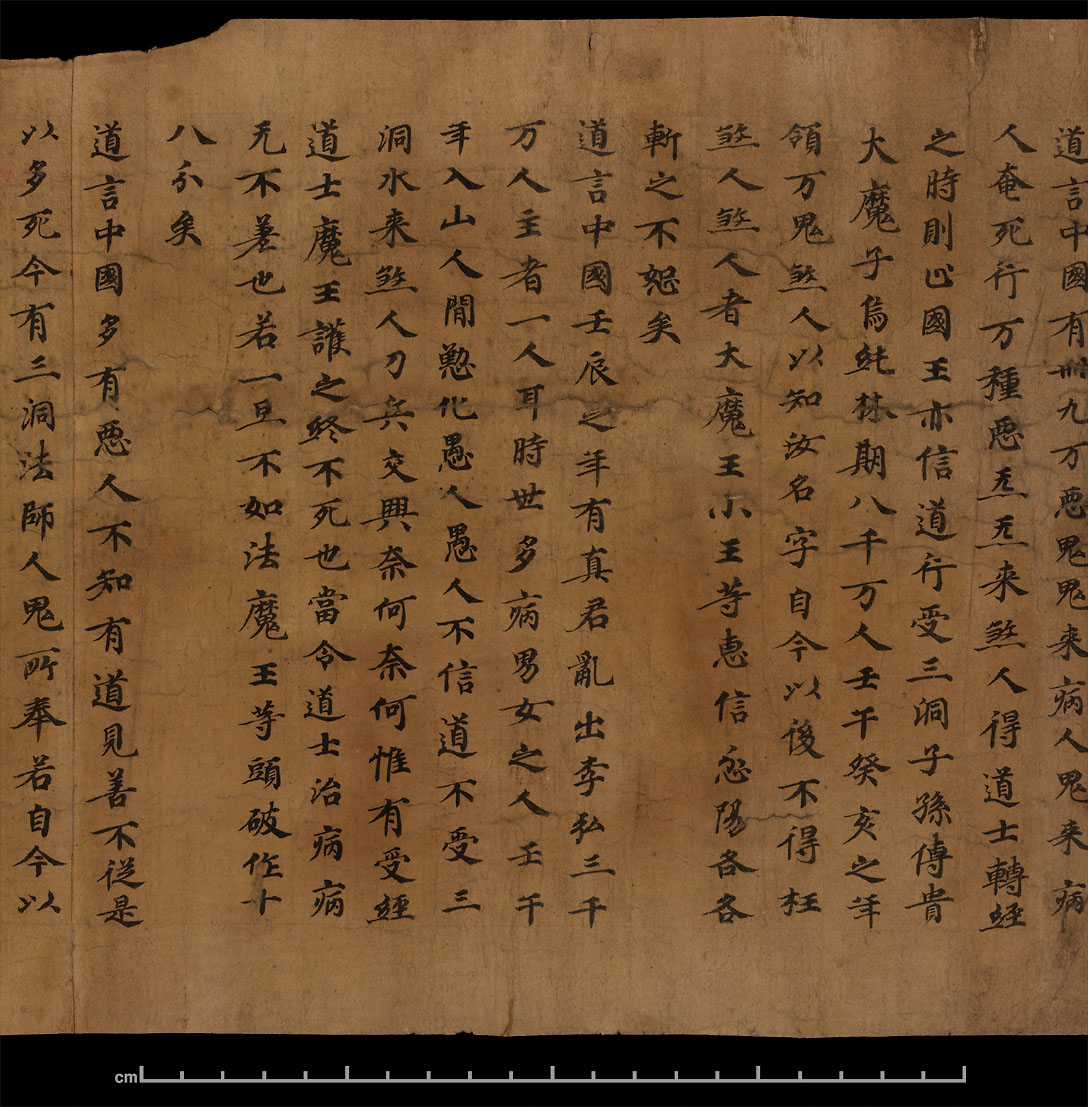 道言中國有卌九万惡鬼鬼来病人鬼来病
人奄死行万種惡炁炁来煞人得道士轉經
之時則止國王亦信道行受三洞子孫傳貴
大魔子烏純林期八千万人壬午癸亥之年
領万鬼煞人以知汝名字自今以後不得枉
煞人煞人者大魔王小王等惠信忩陽各各
斬之不恕矣
道言中國壬辰之年有真君亂出李弘三千
万人主者一人耳時世多病男女之人壬午
年入山人間懃化愚人愚人不信道不受三
洞水来煞人刀兵交興奈何奈何惟有受經
道士魔王護之終不死也當令道士治病病
无不差也若一旦不如法魔王等頭破作十
八分矣
道言中國多有惡人不知有道見善不從是
以多死今有三洞法師人鬼所奉若自今以